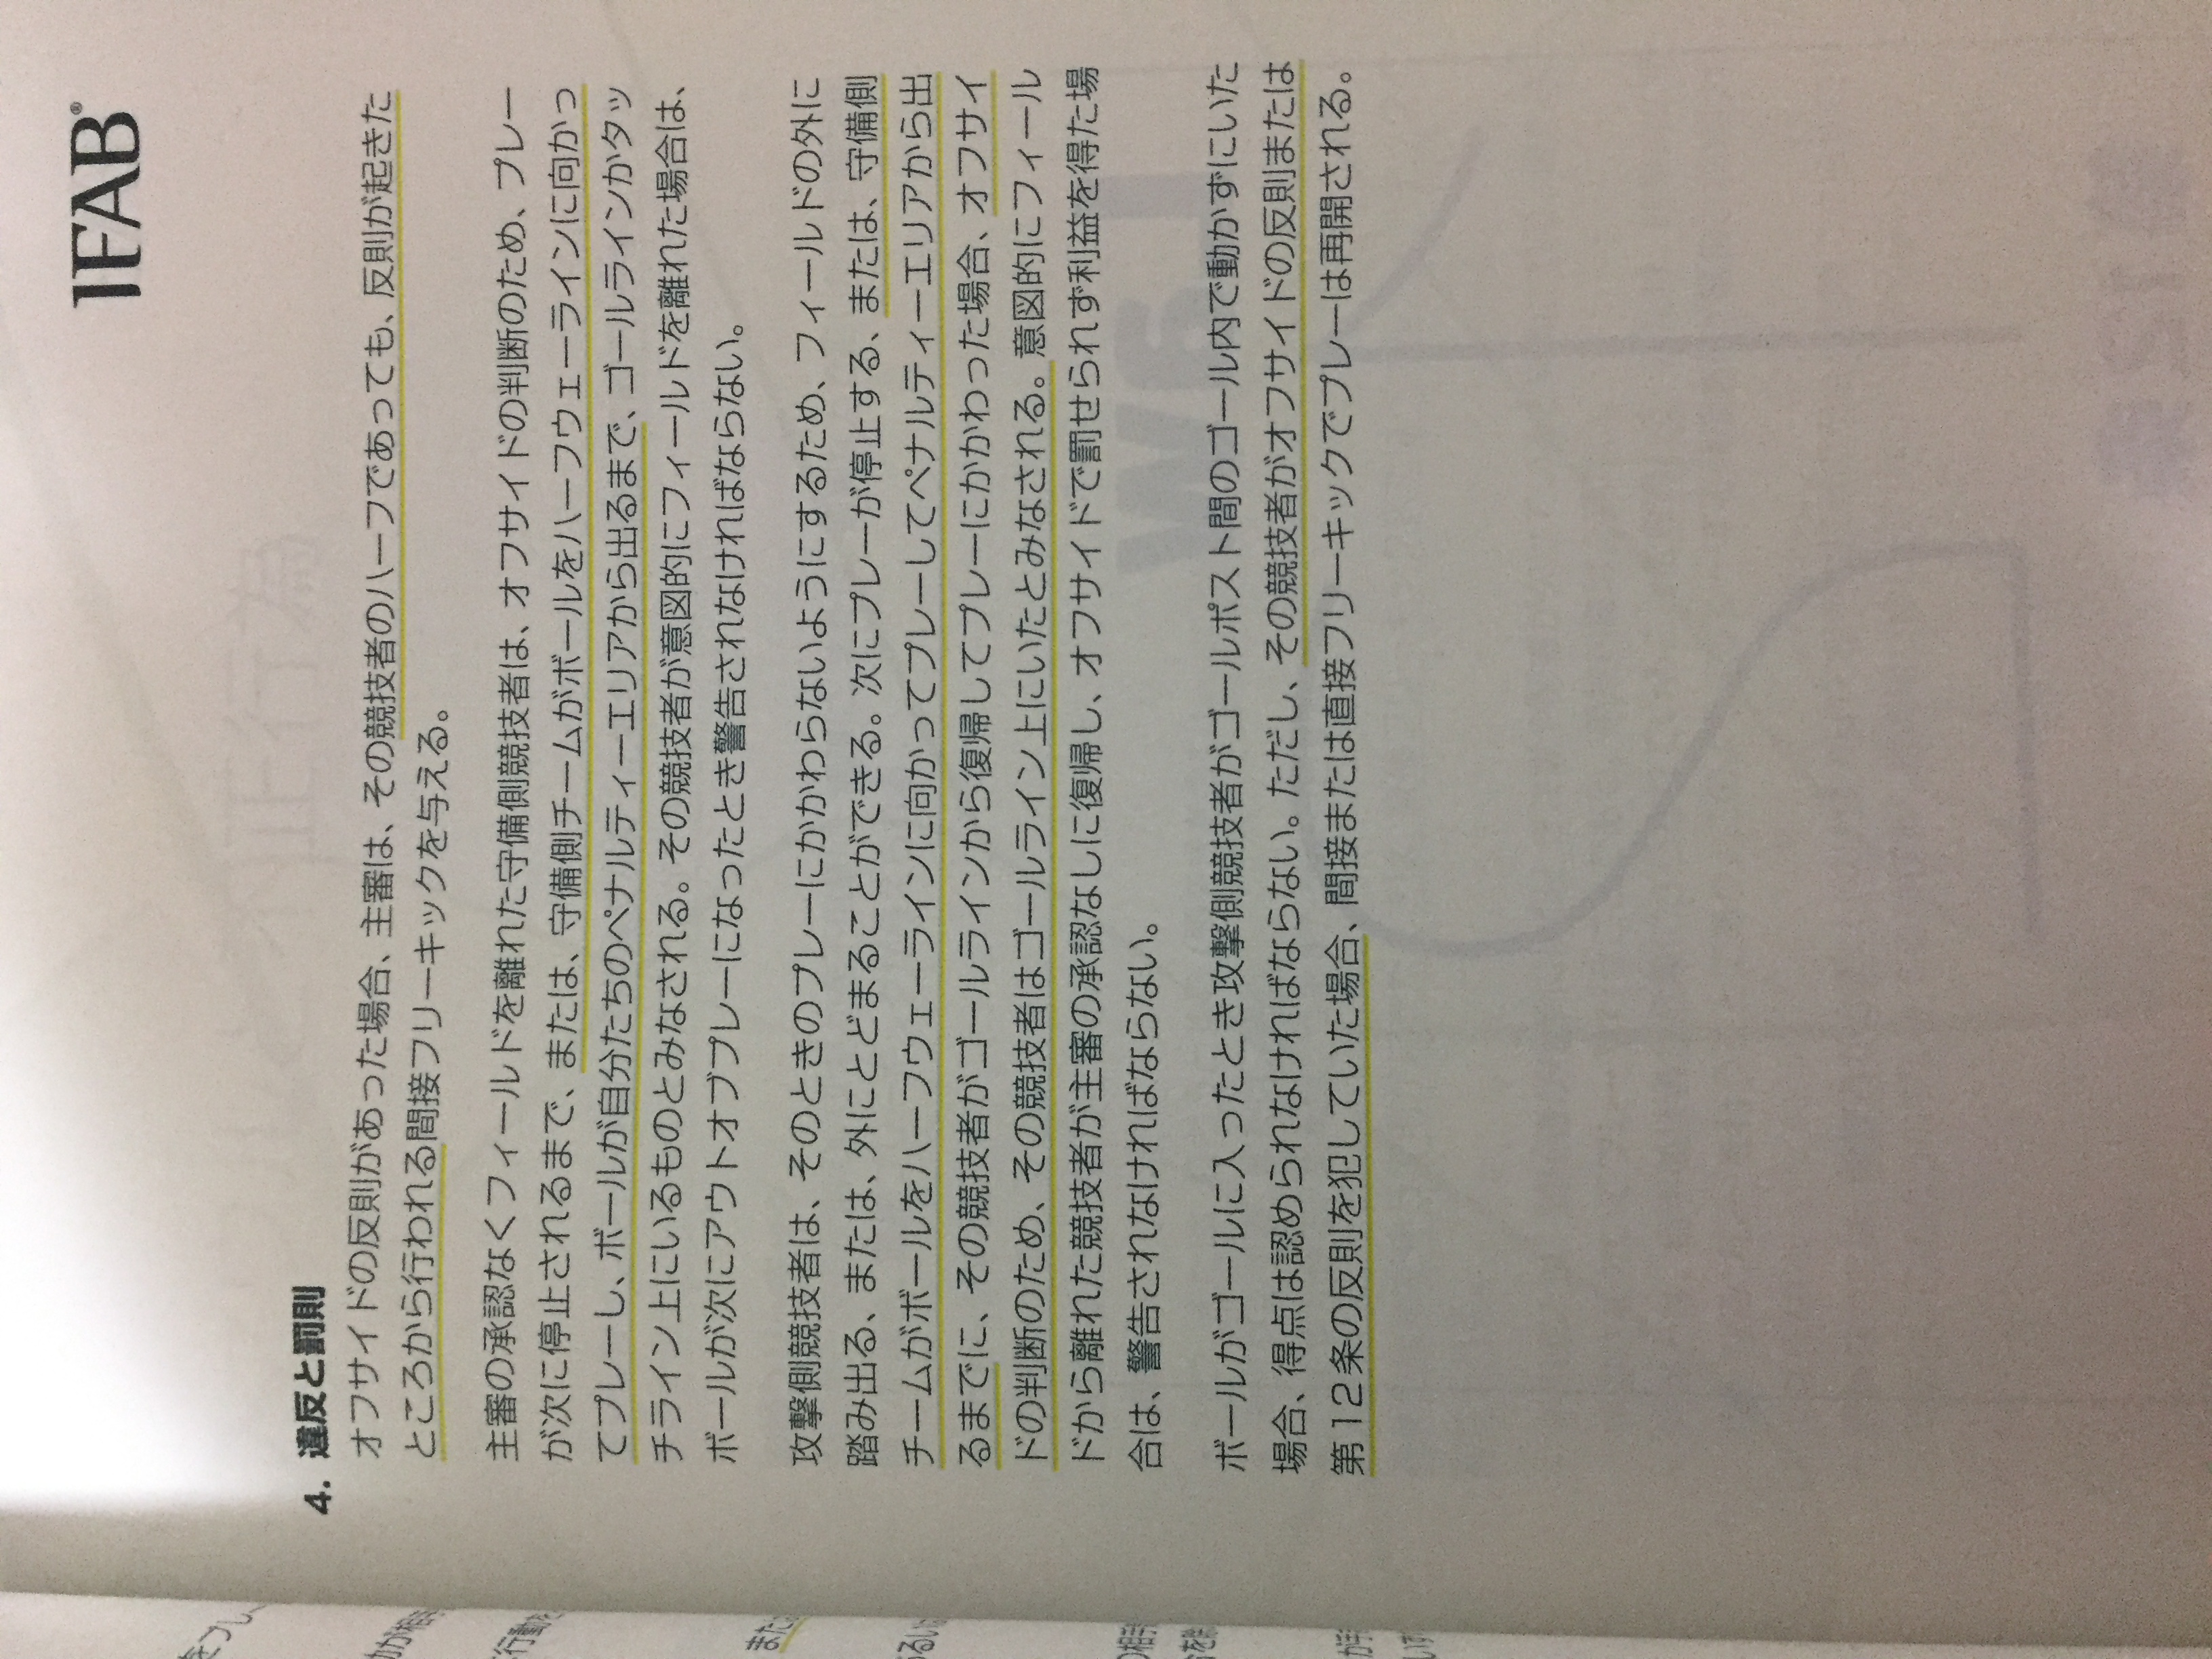 IFAB®
4. 違反と罰則
オフサイドの反則があった場合、主審は、その競技者のハーフであっても、反則が起きた
ところから行われる間接フリーキックを与える。
主審の承認なくフィールドを離れた守備側競技者は、オフサイドの判断のため、プレー
が次に停止されるまで、または、守備側チームがボールをハーフウェーラインに向かっ
てプレーし、ボールが自分たちのペナルティーエリアから出るまで、ゴールラインかタッ
チライン上にいるものとみなされる。その競技者が意図的にフィールドを離れた場合は、
ボールが次にアウトオブプレーになったとき警告されなければならない。
攻撃側競技者は、そのときのプレーにかかわらないようにするため、フィールドの外に
踏み出る、または、外にとどまることができる。次にプレーが停止する、または、守備側
チームがボールをハーフウェーラインに向かってプレーしてペナルティーエリアから出
るまでに、その競技者がゴールラインから復帰してプレーにかかわった場合、オフサイ
ドの判断のため、その競技者はゴールライン上にいたとみなされる。意図的にフィール
ドから離れた競技者が主審の承認なしに復帰し、オフサイドで罰せられず利益を得た場
合は、警告されなければならない。
ボールがゴールに入ったとき攻撃側競技者がゴールポスト間のゴール内で動かずにいた
場合、得点は認められなければならない。ただし、その競技者がオフサイドの反則または
第12条の反則を犯していた場合、間接または直接フリーキックでプレーは再開される。